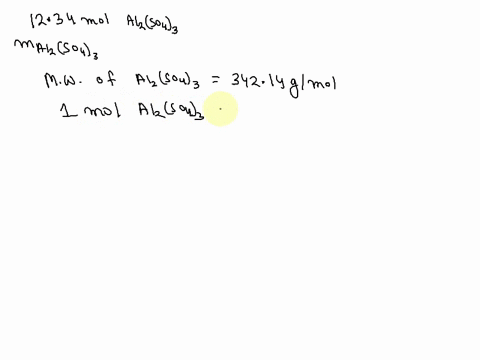 12.34 mol Al₂(SO₄)₃
mAl₂(SO₄)₃
M.W. of Al₂(SO₄)₃ = 342.14 g/mol
1 mol Al₂(SO₄)₃